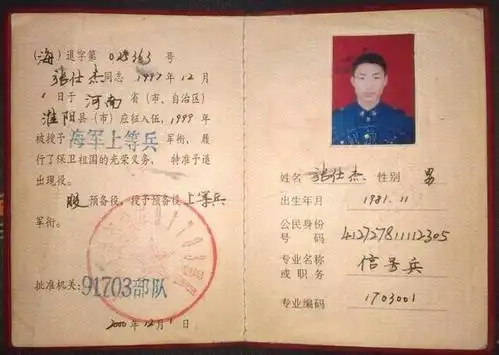 (海)退字第 023363 号
张仕杰同志 1997年12月
1日于河南省(市、自治区)
淮阳县(市)应征入伍,1999年
被授予海军上等兵军衔,履
行了保卫祖国的光荣义务,特准予退
出现役。
服预备役,授予预备役上等兵
军衔。
批准机关:91703部队
2000年12月1日
姓名 张仕杰 性别 男
出生年月 1981.11
公民身份
号码 412727811112305
专业名称
或职务 信号兵
专业编码 1703001